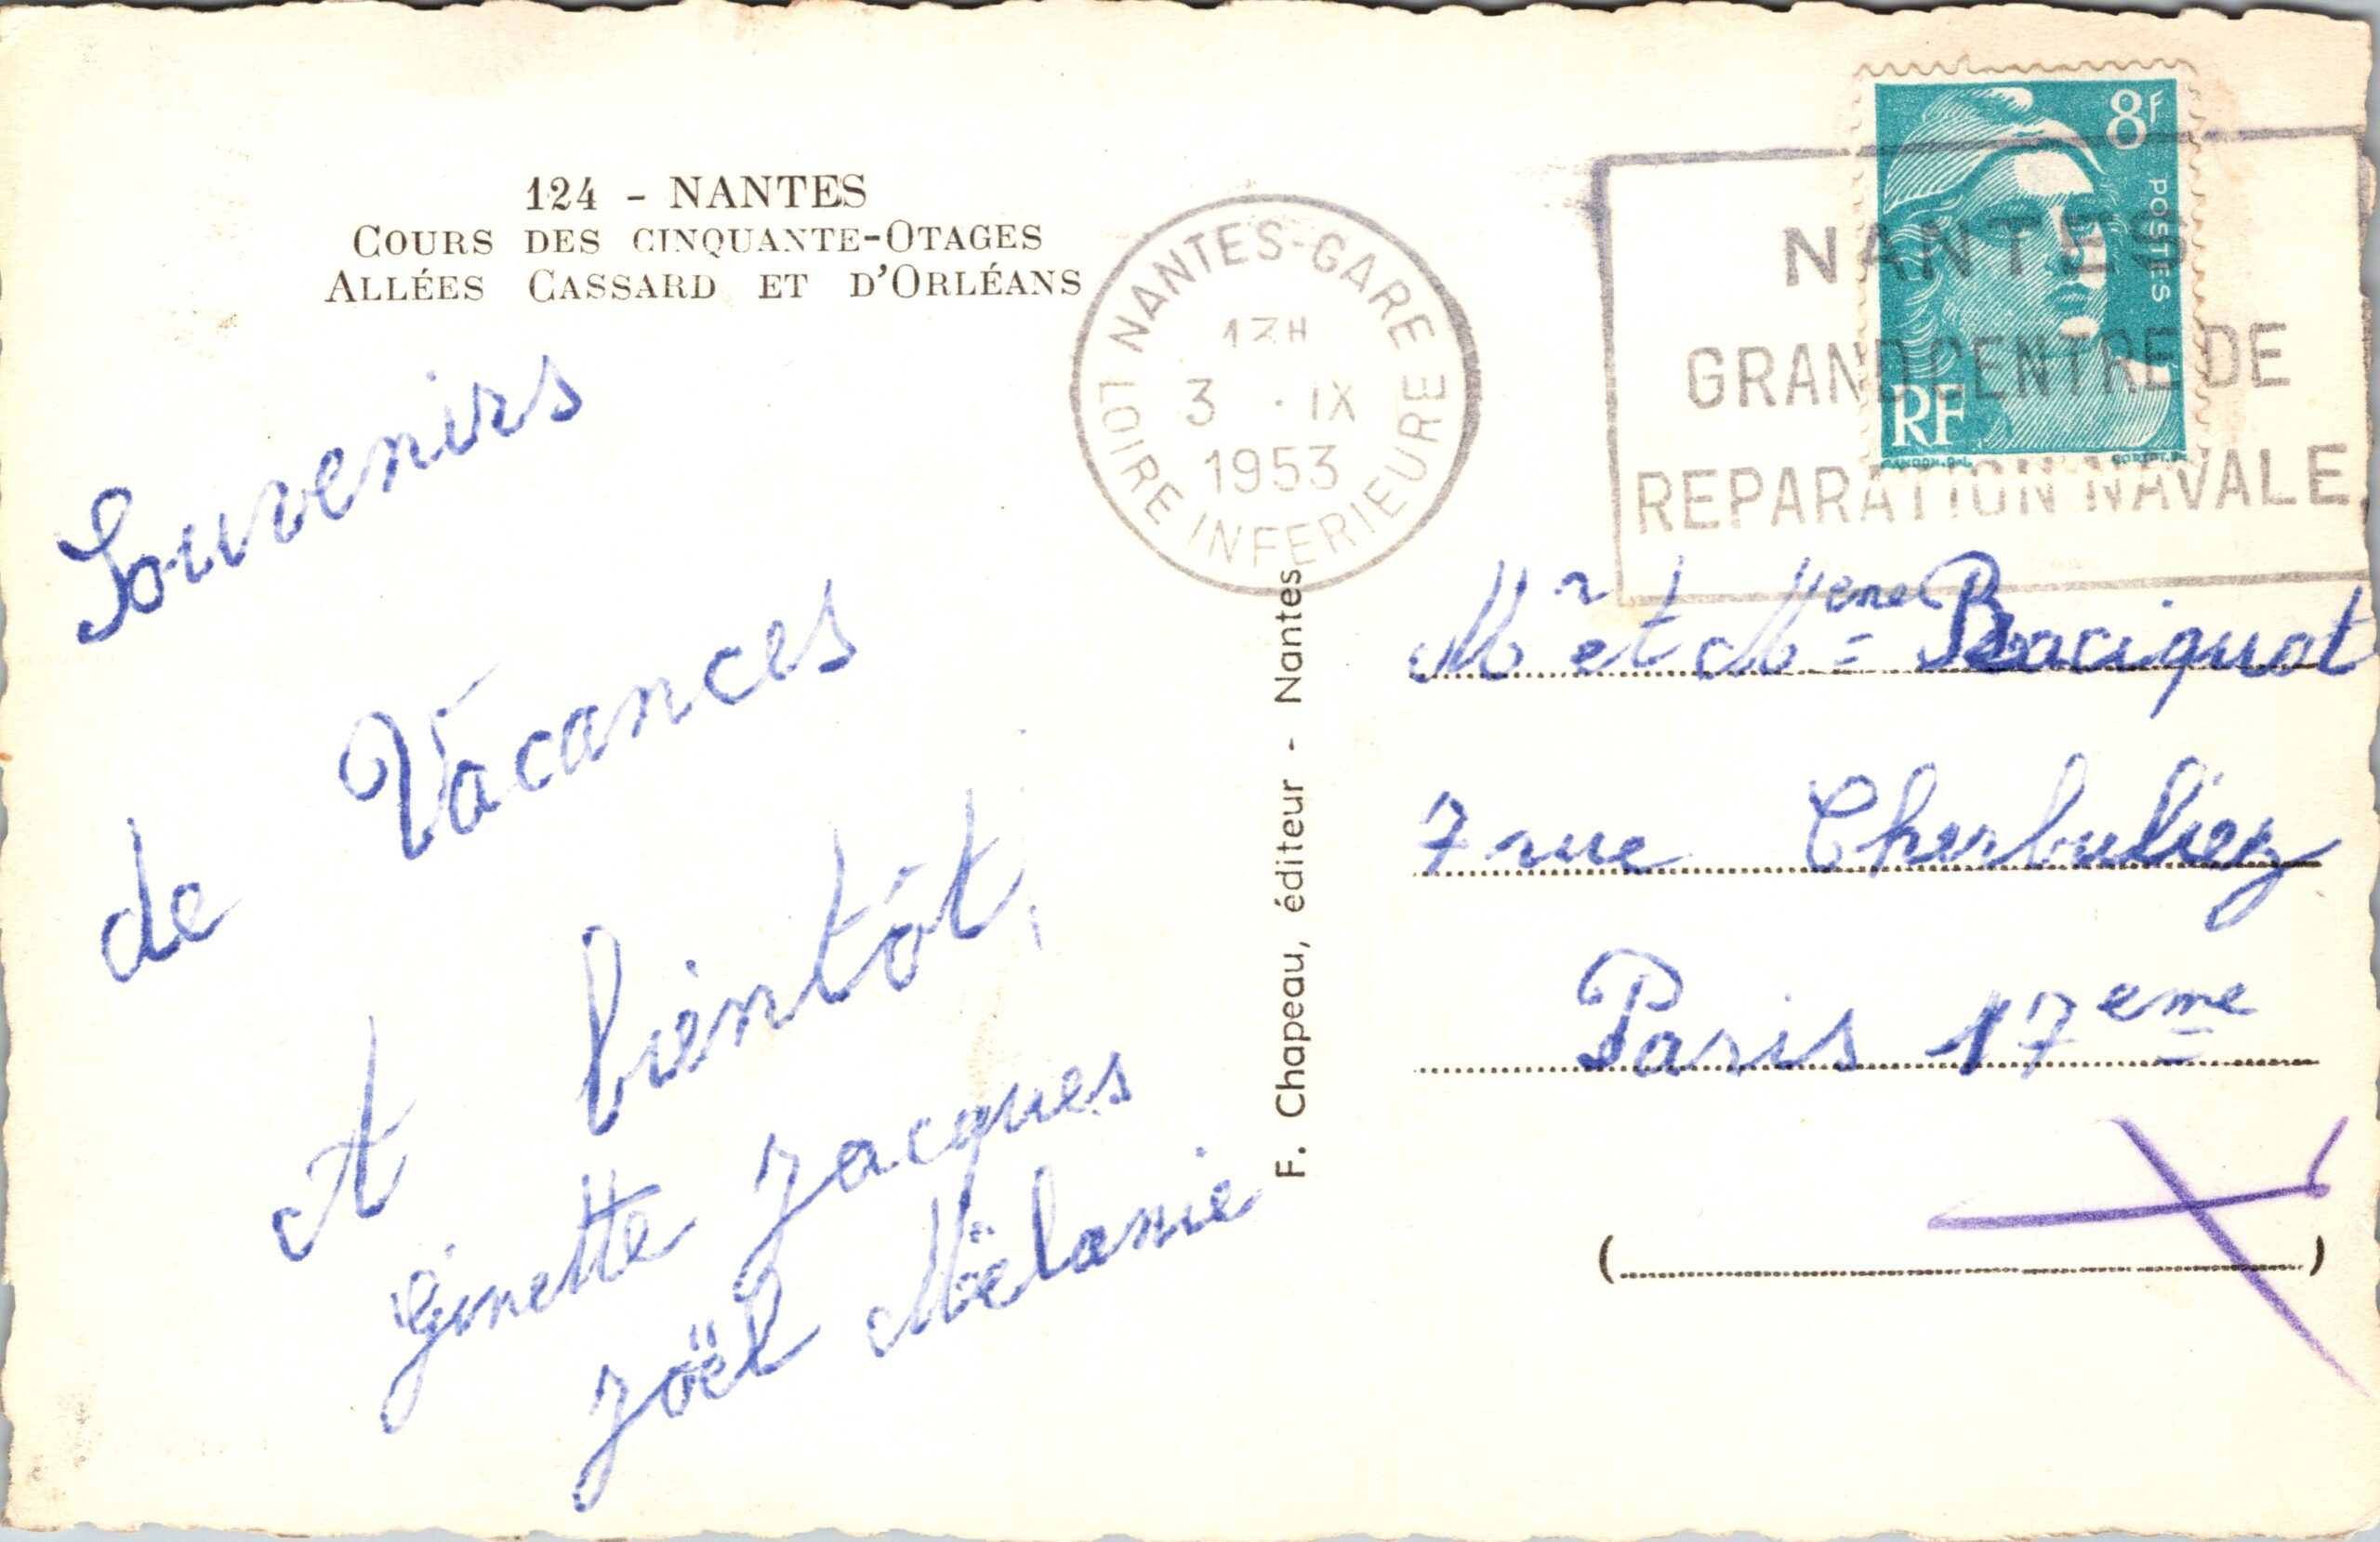 124 - NANTES
COURS DES CINQUANTE-OTAGES
ALLÉES CASSARD ET D'ORLÉANS
Souvenirs
de Vacances
A bientôt,
Ginette Jacques
Joël Mélanie
F. Chapeau, éditeur - Nantes
NANTES-GARE
13H
3 . IX
1953
LOIRE INFERIEURE
8F
POSTES
RF
NANTES
GRAND CENTRE DE
REPARATION NAVALE
Mr et Mme Baciquot
7 rue Cherbuliez
Paris 17eme
(
)